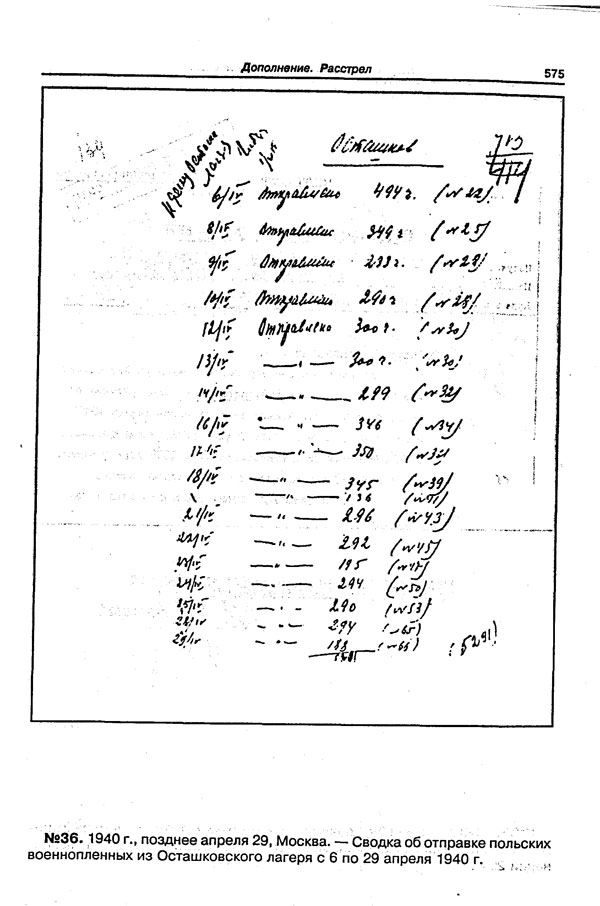 Дополнение. Расстрел 575
Осташков
6/IV Отправлено 494 ч. (№ 22)
8/IV Отправлено 349 ч (№ 25)
9/IV Отправлено 233 ч. (№ 28)
10/IV Отправлено 290 ч (№ 28)
12/IV Отправлено 300 ч. (№ 30)
13/IV — " — 300 ч. (№ 30)
14/IV — " — 299 (№ 32)
16/IV — " — 346 (№ 34)
17/IV — " — 350 (№ 37)
18/IV — " — 345 (№ 39)
— " — 136
21/IV — " — 296 (№ 43)
22/IV — " — 292 (№ 45)
— " — 195 (№ 47)
24/IV — " — 294 (№ 50)
25/IV — " — 290 (№ 53)
— " — 294 (№ 65)
29/IV — " — 188 (№ 66)
(5291)
№36. 1940 г., позднее апреля 29, Москва. — Сводка об отправке польских
военнопленных из Осташковского лагеря с 6 по 29 апреля 1940 г.